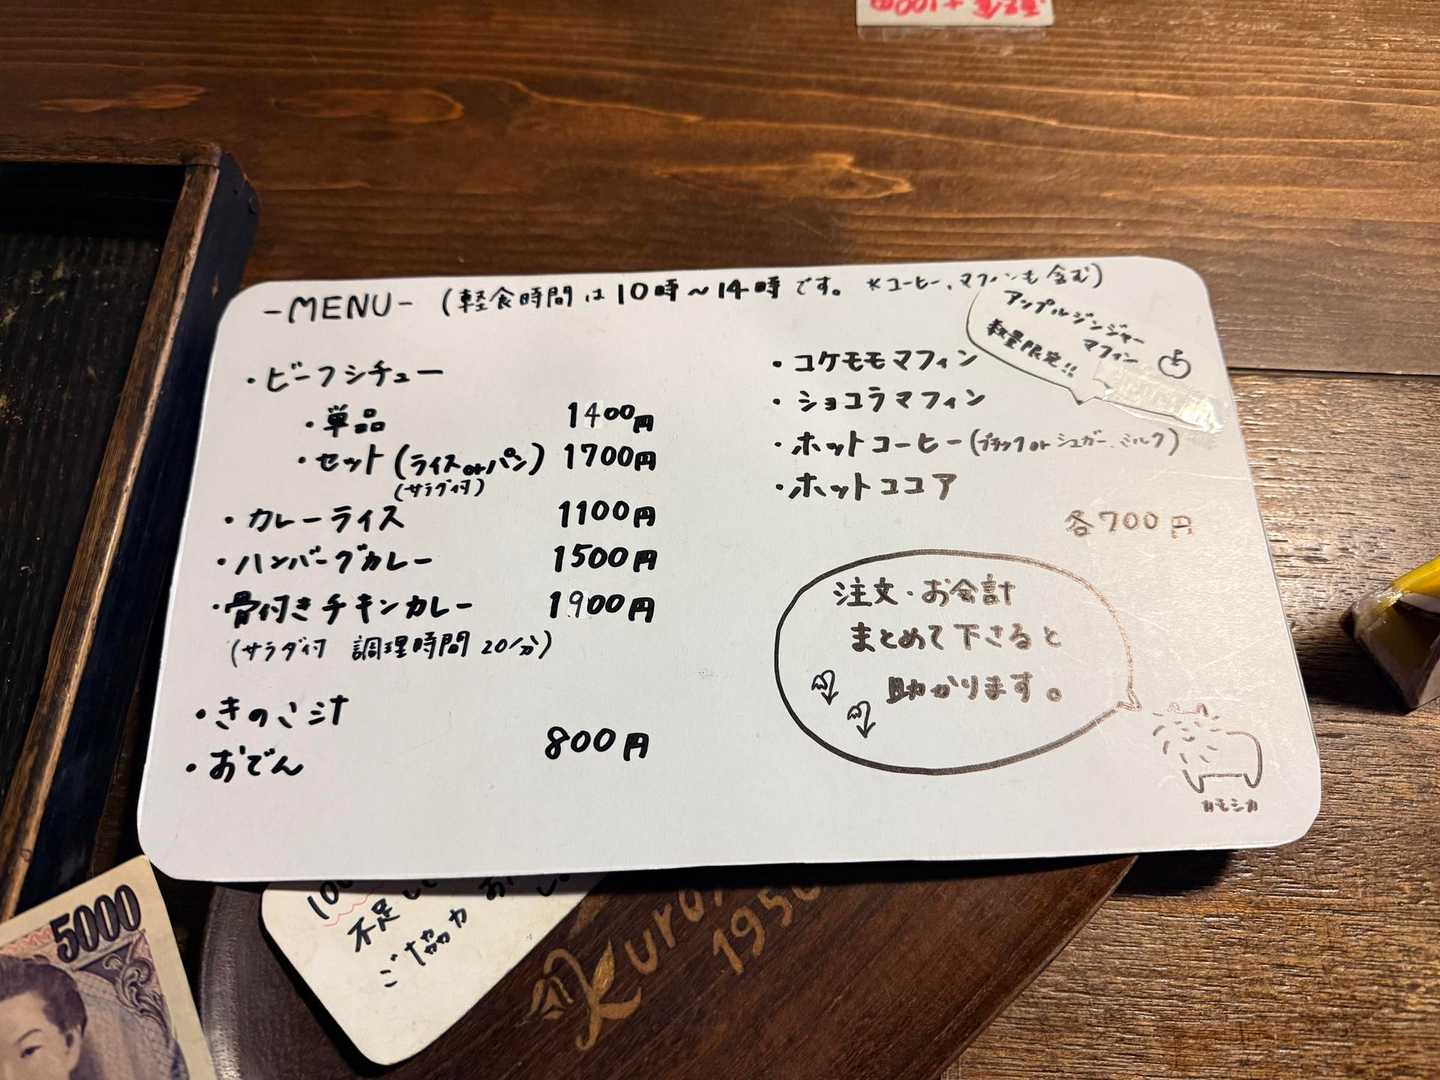 -MENU- (軽食時間は10時～14時です。 *コーヒー、マフィンも含む)
アップルジンジャー
マフィン
数量限定!!
・ビーフシチュー
・単品 1400円
・セット(ライスorパン) 1700円
(サラダ付)
・カレーライス 1100円
・ハンバーグカレー 1500円
・骨付きチキンカレー 1900円
(サラダ付 調理時間20分)
・きのこ汁
・おでん 800円
・コケモモマフィン
・ショコラマフィン
・ホットコーヒー(ブラックorシュガー、ミルク)
・ホットココア
各700円
注文・お会計
まとめて下さると
助かります。
カモシカ
不足し
ご協力
1950
5000
+100円